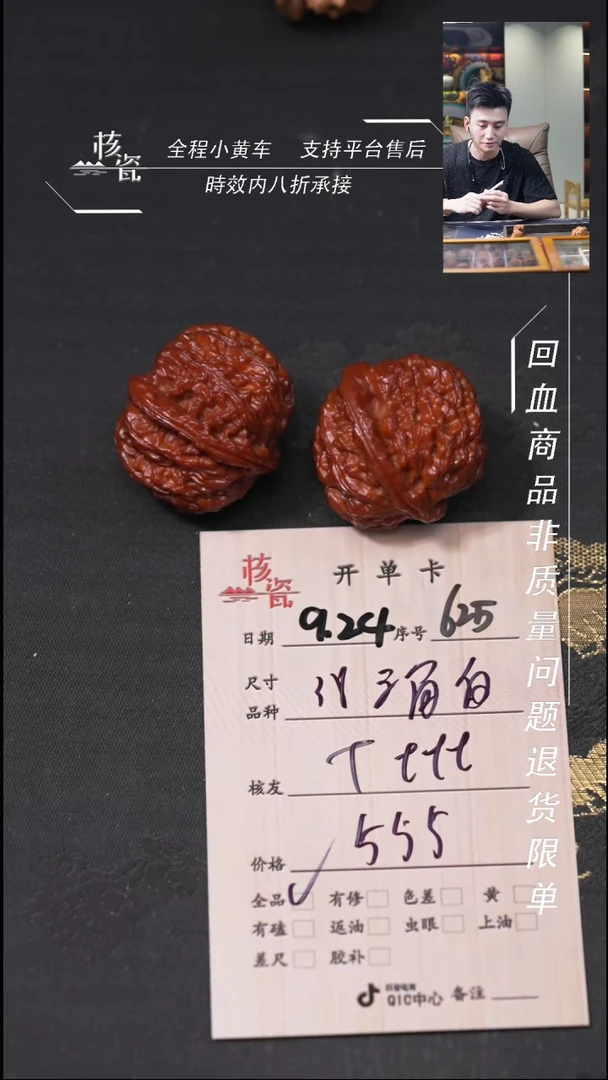 核瓷
全程小黄车 支持平台售后
時效内八折承接
回血商品非质量问题退货限单
核瓷
开单卡
日期 9.24 序号 625
尺寸
品种
核友 T ttt
价格 555
全品 有修 色差 黄
有磕 返油 虫眼 上油
差尺 胶补
抖音电商
QIC中心 备注